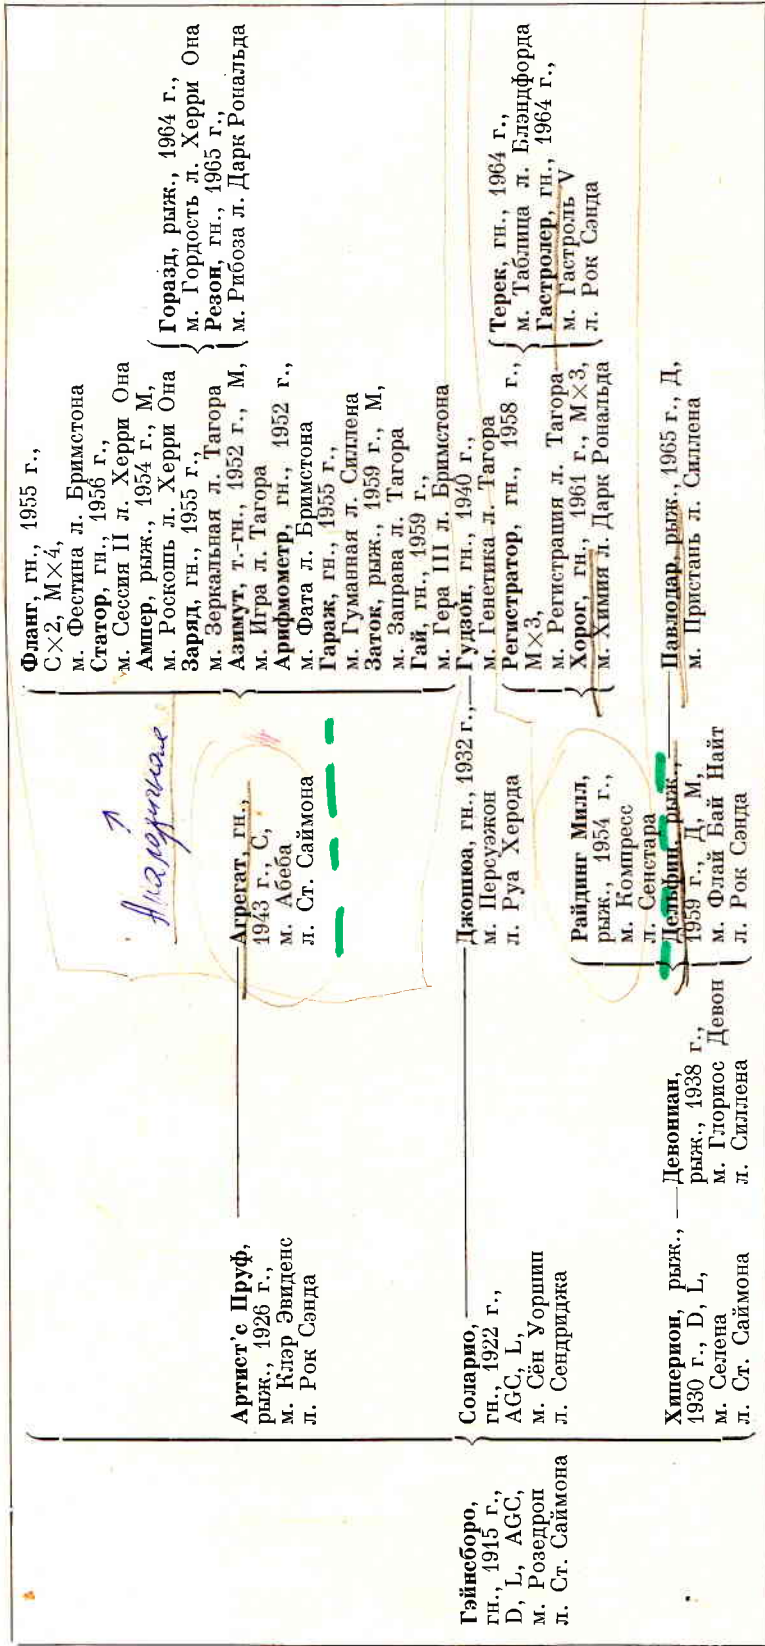 Гэйнсборо,
гн., 1915 г.,
D, L, AGC,
м. Розедроп
л. Ст. Саймона
Артист'с Пруф,
рыж., 1926 г.,
м. Клэр Эвиденс
л. Рок Сэнда
Соларио,
гн., 1922 г.,
AGC, L,
м. Сён Уоршип
л. Сендриджа
Хиперион, рыж.,
1930 г., D, L,
м. Селена
л. Ст. Саймона
Девониан,
рыж., 1938 г.,
м. Глориос Девон
л. Силлена
Агрегат, гн.,
1943 г., С,
м. Абеба
л. Ст. Саймона
Джошюа, гн., 1932 г.,
м. Персуэжон
л. Руа Херода
Райдинг Милл,
рыж., 1954 г.,
м. Компресс
л. Сенстара
Дельфин, рыж.,
1959 г., Д, М,
м. Флай Бай Найт
л. Рок Сэнда
Фланг, гн., 1955 г.,
С×2, М×4,
м. Фестина л. Бримстона
Статор, гн., 1956 г.,
м. Сессия II л. Херри Она
Ампер, рыж., 1954 г., М,
м. Роскошь л. Херри Она
Заряд, гн., 1955 г.,
м. Зеркальная л. Тагора
Азимут, т.-гн., 1952 г., М,
м. Игра л. Тагора
Арифмометр, гн., 1952 г.,
м. Фата л. Бримстона
Гараж, гн., 1955 г.,
м. Гуманная л. Силлена
Заток, рыж., 1959 г., М,
м. Заправа л. Тагора
Гай, гн., 1959 г.,
м. Гера III л. Бримстона
Гудзон, гн., 1940 г.,
м. Генетика л. Тагора
Регистратор, гн., 1958 г.,
М×3,
м. Регистрация л. Тагора
Хорог, гн., 1961 г., М×3,
м. Химия л. Дарк Рональда
Павлодар, рыж., 1965 г., Д,
м. Пристань л. Силлена
Горазд, рыж., 1964 г.,
м. Гордость л. Херри Она
Резон, гн., 1965 г.,
м. Рибоза л. Дарк Рональда
Терек, гн., 1964 г.,
м. Таблица л. Блэндфорда
Гастролер, гн., 1964 г.,
м. Гастроль V
л. Рок Сэнда